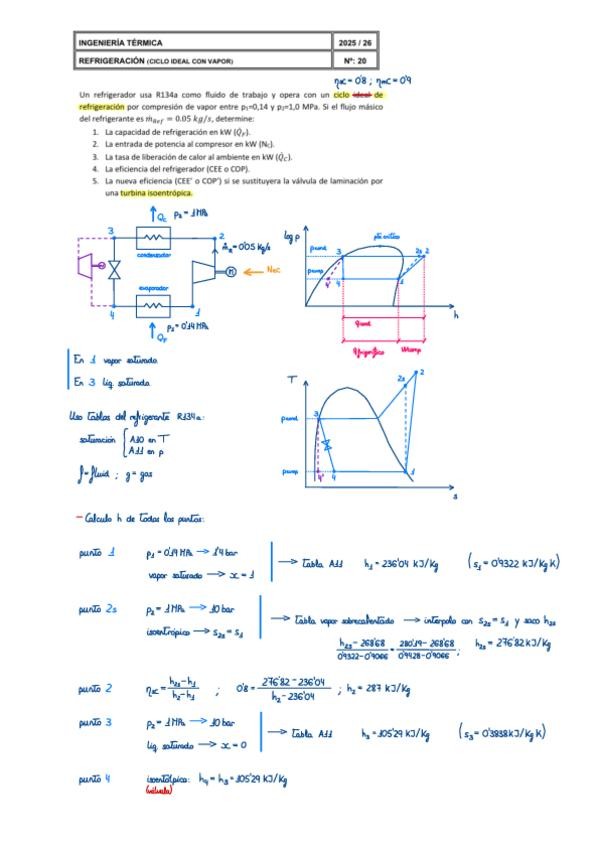 INGENIERÍA TÉRMICA
2025 / 26
REFRIGERACIÓN (CICLO IDEAL CON VAPOR)
Nº: 20
ηsc = 0'8 ; ηmc = 0'9
Un refrigerador usa R134a como fluido de trabajo y opera con un ciclo ideal de
refrigeración por compresión de vapor entre p₁=0,14 y p₂=1,0 MPa. Si el flujo másico
del refrigerante es ṁRef = 0.05 kg/s, determine:
1. La capacidad de refrigeración en kW (Q̇F).
2. La entrada de potencia al compresor en kW (NC).
3. La tasa de liberación de calor al ambiente en kW (Q̇C).
4. La eficiencia del refrigerador (CEE o COP).
5. La nueva eficiencia (CEE' o COP') si se sustituyera la válvula de laminación por
una turbina isoentrópica.
QC p₂ = 1 MPa
3
2
condensador
ṁR = 0'05 Kg/s
M
NEC
evaporador
4
1
QF p₁ = 0'14 MPa
log p
pto crítico
pcond
3
2s 2
pevap
4' 4
1
h
qcond
qfrigorífico
wcomp
En 1 vapor saturado
En 3 líq. saturado
Uso tablas del refrigerante R134a:
saturación { A10 en T
A11 en p
f=fluid ; g = gas
T
2s 2
pcond
3
pevap
4' 4
1
s
- Calculo h de todos los puntos:
punto 1 p₁ = 0'14 MPa → 1'4 bar
vapor saturado → x = 1
→ Tabla A11 h₁ = 236'04 kJ/Kg (s₁ = 0'9322 kJ/Kg K)
punto 2s p₂ = 1 MPa → 10 bar
isoentrópico → s2s = s₁
→ Tabla vapor sobrecalentado → interpolo con s2s = s₁ y saco h2s
(h2s - 268'68)/(0'9322 - 0'9066) = (280'19 - 268'68)/(0'9428 - 0'9066) ; h2s = 276'82 kJ/Kg
punto 2 ηsc = (h2s - h₁)/(h₂ - h₁) ; 0'8 = (276'82 - 236'04)/(h₂ - 236'04) ; h₂ = 287 kJ/Kg
punto 3 p₂ = 1 MPa → 10 bar
líq. saturado → x = 0
→ Tabla A11 h₃ = 105'29 kJ/Kg (s₃ = 0'3838 kJ/Kg K)
punto 4 isoentálpica: h₄ = h₃ = 105'29 kJ/Kg
(válvula)